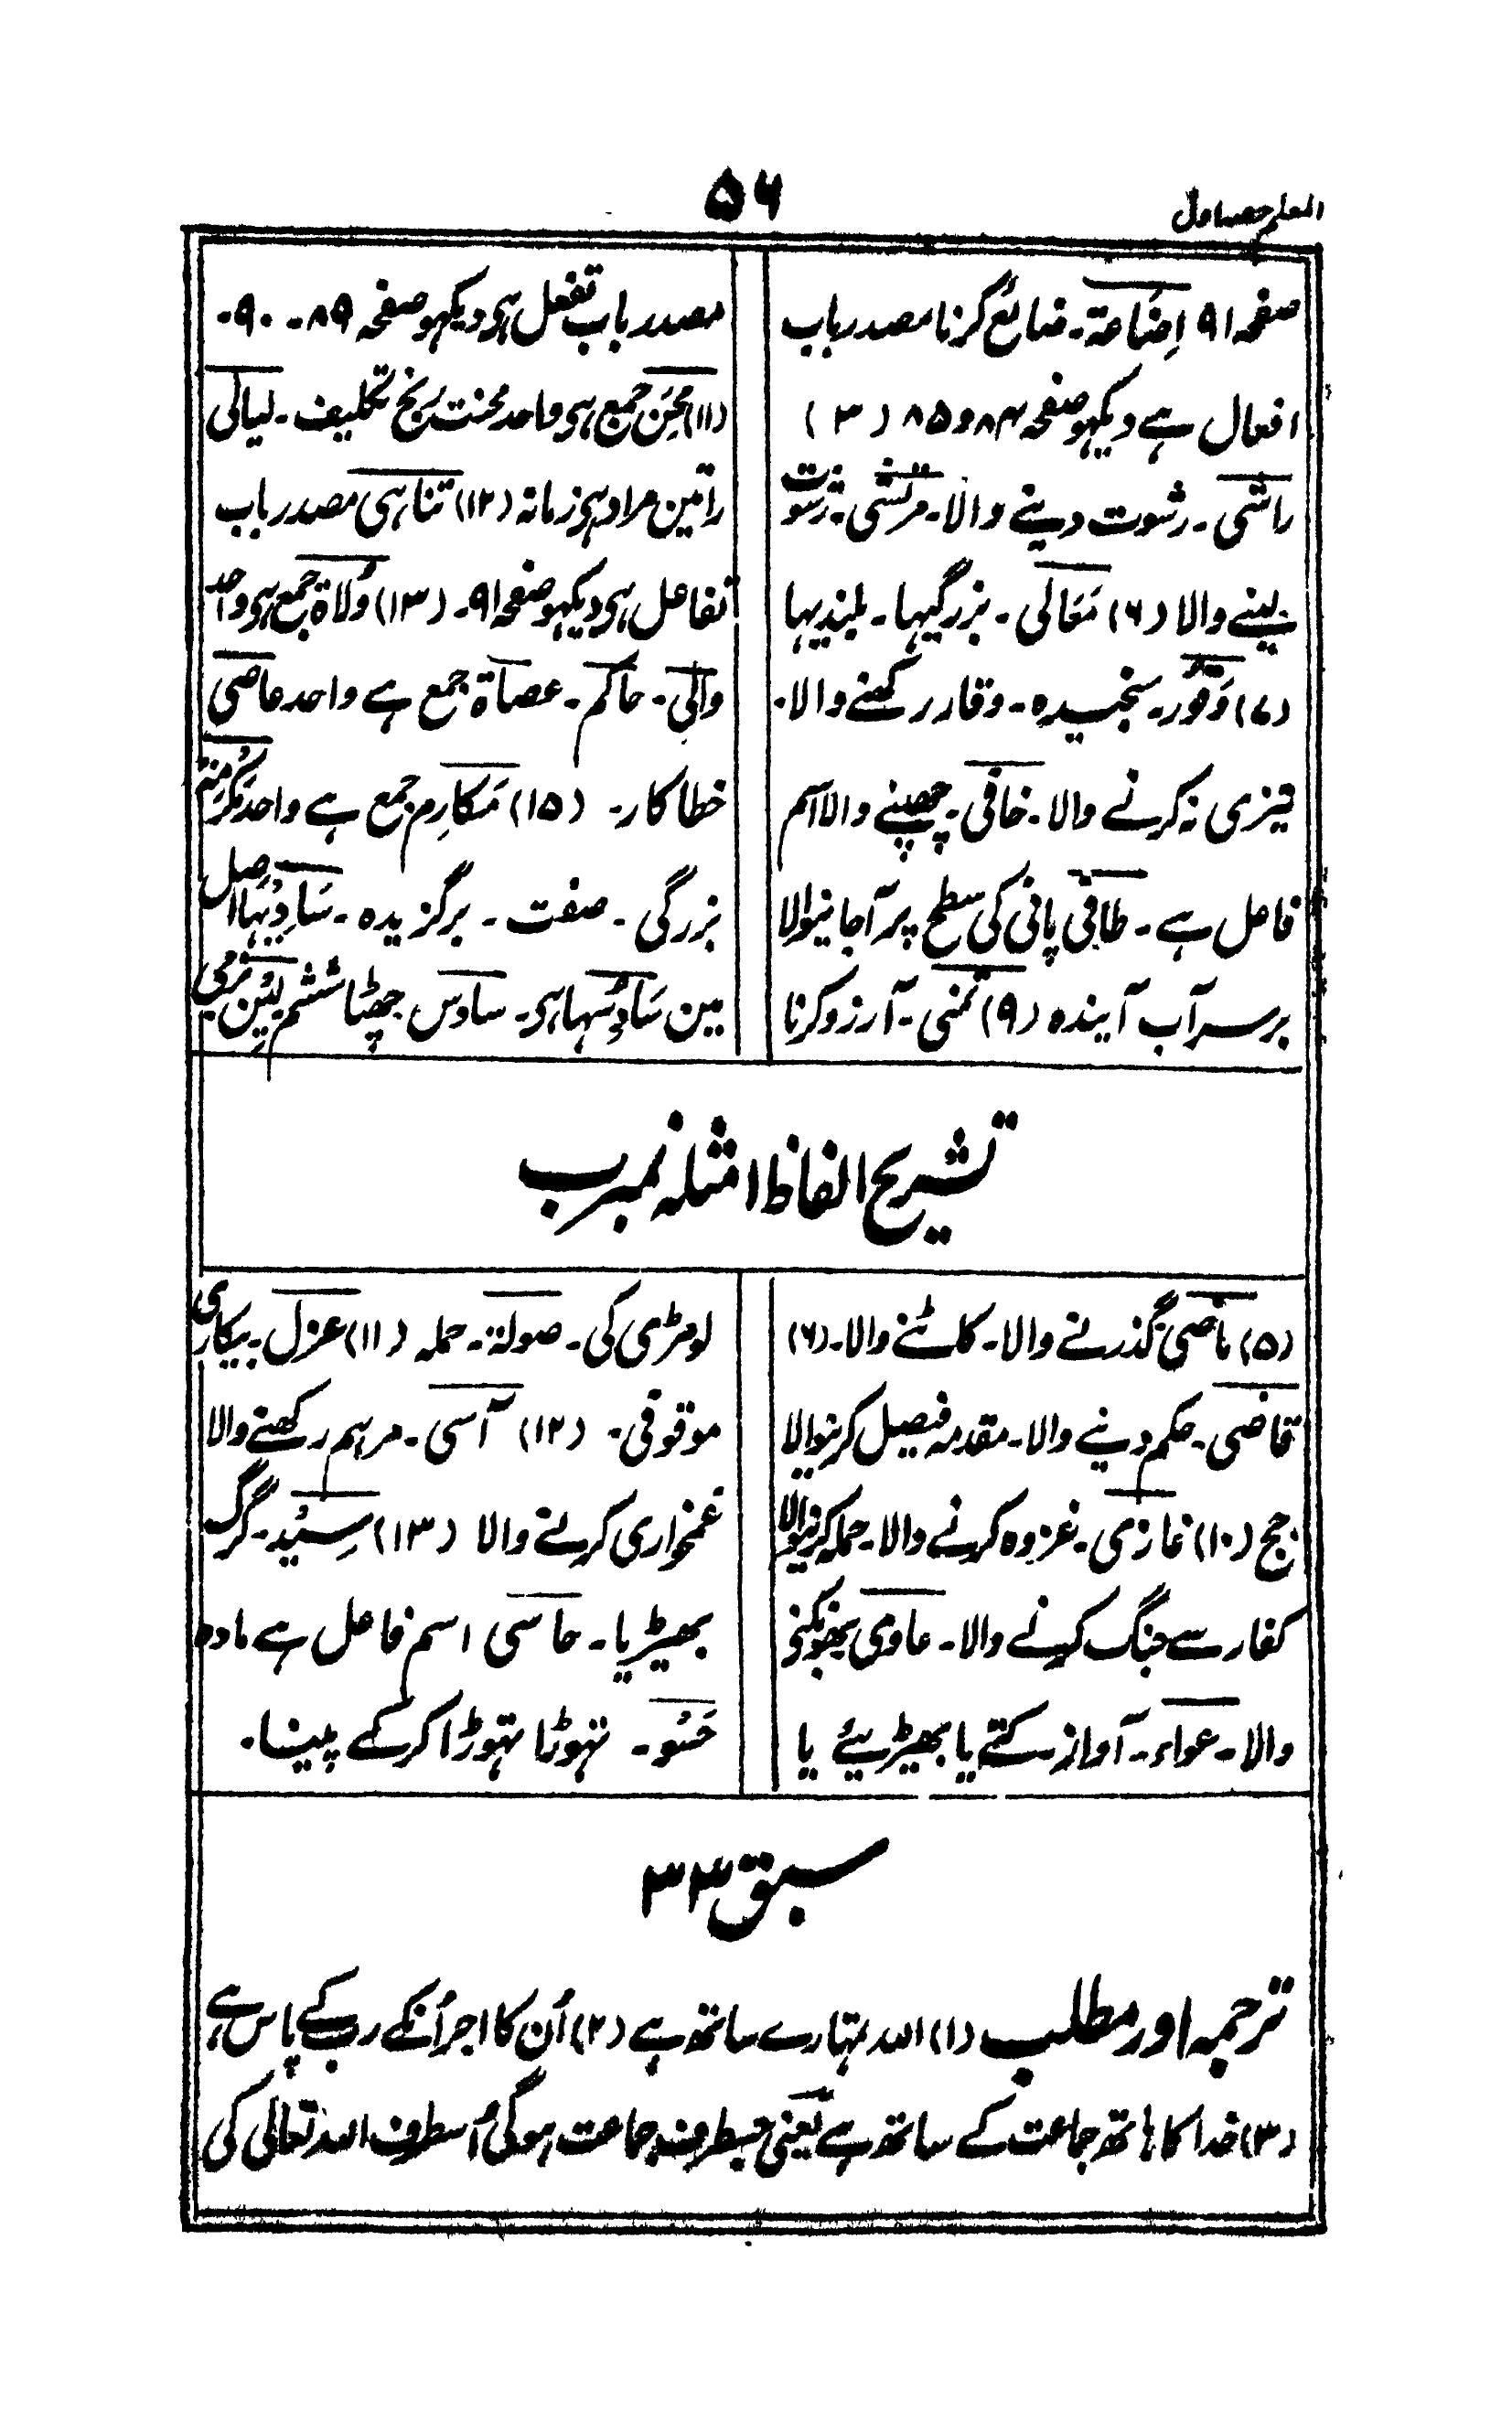 المعلم حصہ اول
۵۶
صفحہ ۹۱ اِضَاعَة۔ ضائع کرنا مصدر باب
افعال ہے دیکہو صفحہ ۸۴ و ۸۵ (۳)
راشی۔ رشوت دینے والا۔ مرتشی۔ رشوت
لینے والا (۶) مَعَالی۔ بزرگیہا۔ بلندیہا
(۷) وَقُوْر۔ سنجیدہ۔ وقار رکھنے والا۔
تیزی نہ کرنے والا۔ خافی۔ چھپنے والا اسم
فاعل ہے۔ طافی پانی کی سطح پر آجانیوالا
برسر آب آیندہ (۹) تمنی۔ آرزو کرنا
مصدر باب تفعل ہی دیکہو صفحہ ۸۹۔ ۹۰۔
(۱۱) مِحَن جمع ہی واحد محنت رنج تکلیف۔ لیالی
راتین مراد ہی زمانہ (۱۲) تناہی مصدر باب
تفاعل ہی دیکہو صفحہ ۹۱۔ (۱۳) وُلاة جمع ہی واحد
والی۔ حاکم۔ عصاة جمع ہے واحد عاصی
خطا کار۔ (۱۵) مَکارِم جمع ہے واحد مَکرُمتہ
بزرگی۔ صفت۔ برگزیدہ۔ سَادِیْہَا اصل
مین سَادِسُہا ہی۔ سادس چھٹا ششم لِیْن نرمی
تشریح الفاظ امثلہ نمبر ب
(۵) ماضی گذرنے والا۔ کاٹنے والا۔ (۶)
قاضی۔ حکم دینے والا۔ مقدمہ فیصل کرنیوالا
جج (۱۰) غازی۔ غزوہ کرنے والا۔ حملہ کرنیوالا
کفار سے جنگ کرنے والا۔ عاوی بھونکنے
والا۔ عواء۔ آواز کتے یا بھیڑیئے یا
لومڑی کی۔ صولة۔ حملہ (۱۱) عزل۔ بیکاری
موقوفی۔ (۱۲) آسی۔ مرہم رکھنے والا
غمخواری کرنے والا (۱۳) سِیْد۔ گرگ
بھیڑیا۔ حاسی اسم فاعل ہے مادہ
حَسْو۔ تہوڑا تہوڑا کرکے پینا۔
سبق ۳۳
ترجمہ اور مطلب (۱) اللہ تمہارے ساتھ ہے (۲) اُن کا اجر اُنکے رب کے پاس ہے
(۳) خدا کا ہاتھ جماعت کے ساتھ ہے یعنی جسطرف جماعت ہوگی اُسطرف اللہ تعالی کی